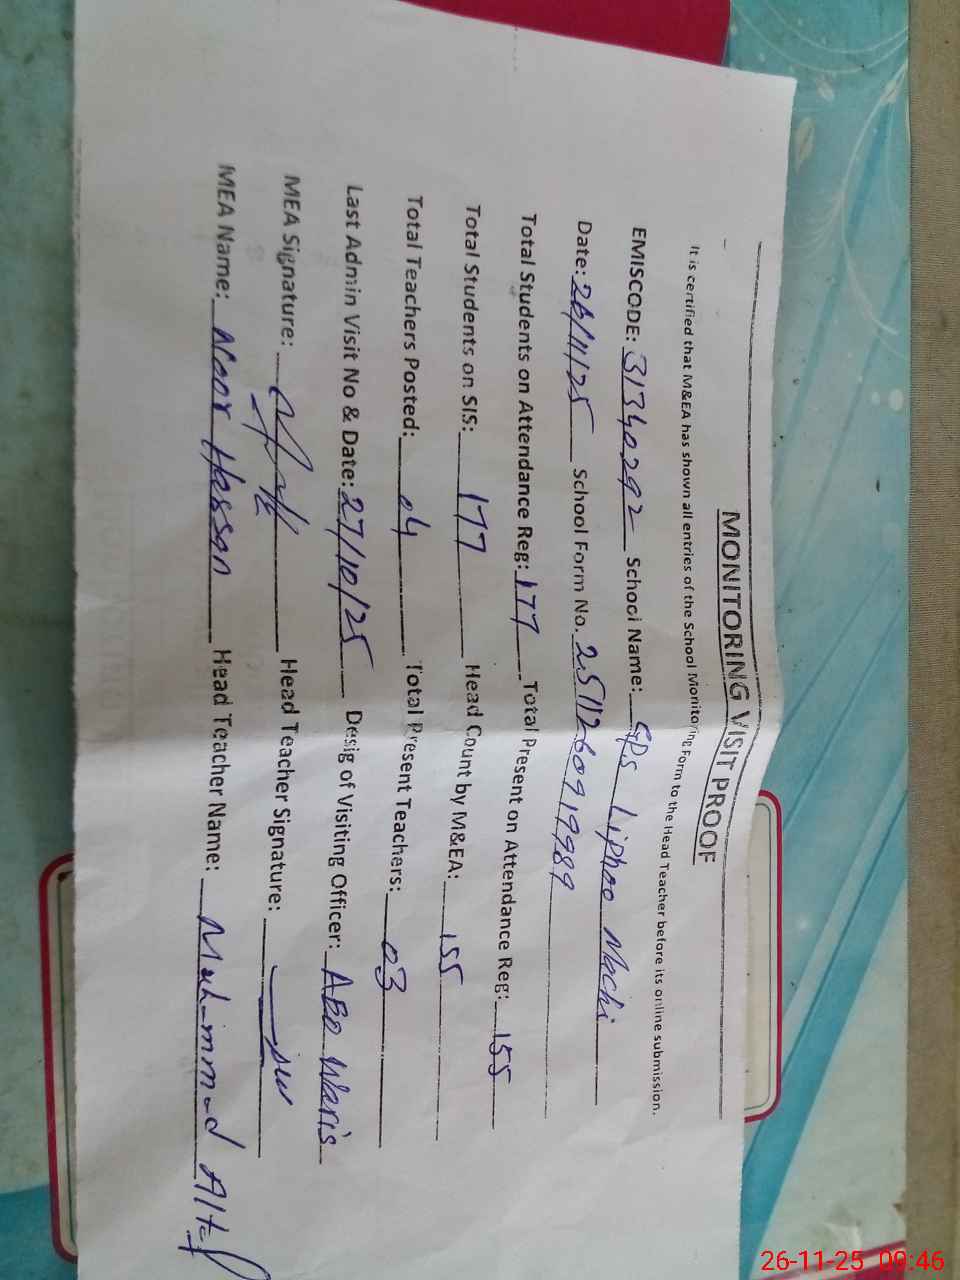 MONITORING VISIT PROOF
It is certified that M&EA has shown all entries of the School Monitoring Form to the Head Teacher before its online submission.
EMISCODE: 31340292 School Name: GPS Liphoo Machi
Date: 26/11/25 School Form No. 2511260919989
Total Students on Attendance Reg: 177 Total Present on Attendance Reg: 155
Total Students on SIS: 177 Head Count by M&EA: 155
Total Teachers Posted: 04 Total Present Teachers: 03
Last Admin Visit No & Date: 27/10/25 Desig of Visiting Officer: AEO Waris
MEA Signature: Head Teacher Signature:
MEA Name: Noor Hassan Head Teacher Name: Muhammad Altaf
26-11-25 09:46